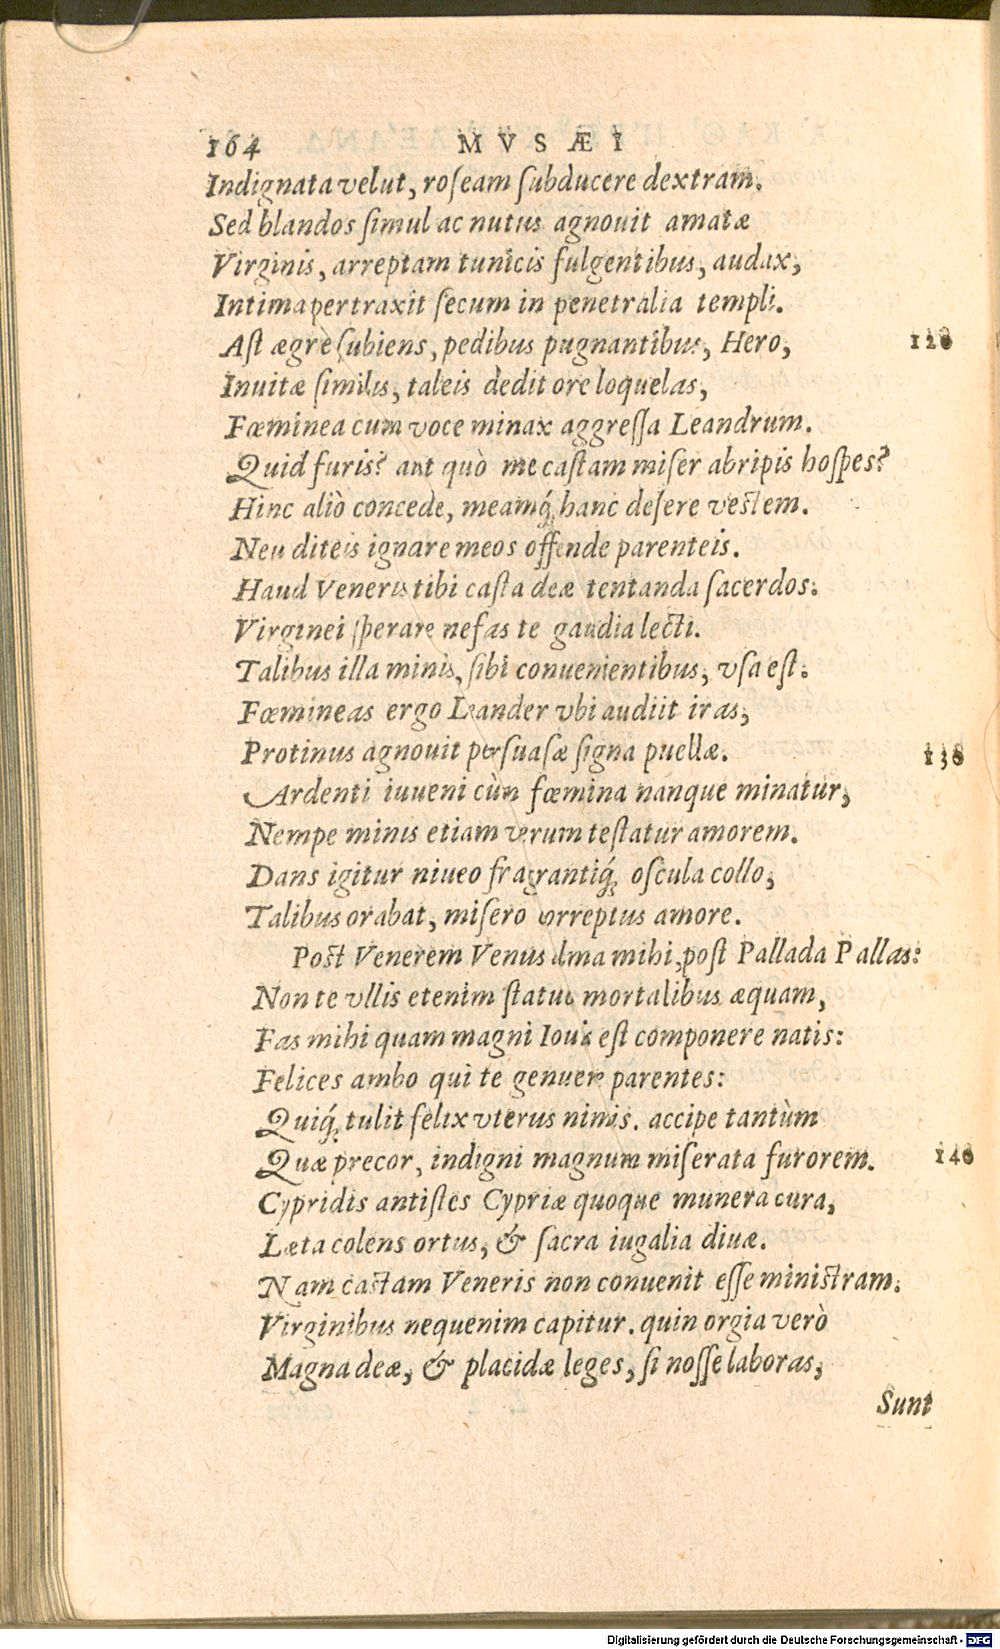 164 MVSÆI
Indignata velut, roseam subducere dextram.
Sed blandos simul ac nutus agnouit amatæ
Virginis, arreptam tunicis fulgentibus, audax,
Intima pertraxit secum in penetralia templi.
Ast ægrè subiens, pedibus pugnantibus, Hero, 120
Inuitæ similis, taleis dedit ore loquelas,
Fœminea cum voce minax aggressa Leandrum.
Quid furis? aut quò me castam miser abripis hospes?
Hinc aliò concede, meamq́; hanc desere vestem.
Neu diteis ignare meos offende parenteis.
Haud Veneris tibi casta deæ tentanda sacerdos:
Virginei sperare nefas te gaudia lecti.
Talibus illa minis, sibi conuenientibus, vsa est.
Fœmineas ergo Leander vbi audiit iras,
Protinus agnouit persuasæ signa puellæ. 130
Ardenti iuueni cùm fœmina nanque minatur,
Nempe minis etiam verum testatur amorem.
Dans igitur niueo fragrantiq́; oscula collo,
Talibus orabat, misero correptus amore.
Post Venerem Venus alma mihi, post Pallada Pallas:
Non te vllis etenim statuo mortalibus æquam,
Fas mihi quam magni Iouis est componere natis:
Felices ambo qui te genuere parentes:
Quiq́; tulit felix vterus nimis. accipe tantùm
Quæ precor, indigni magnum miserata furorem. 140
Cypridis antistes Cypriæ quoque munera cura,
Læta colens ortus, & sacra iugalia diuæ.
Nam castam Veneris non conuenit esse ministram.
Virginibus nequenim capitur. quin orgia verò
Magna deæ, & placidæ leges, si nosse laboras,
Sunt
Digitalisierung gefördert durch die Deutsche Forschungsgemeinschaft - DFG